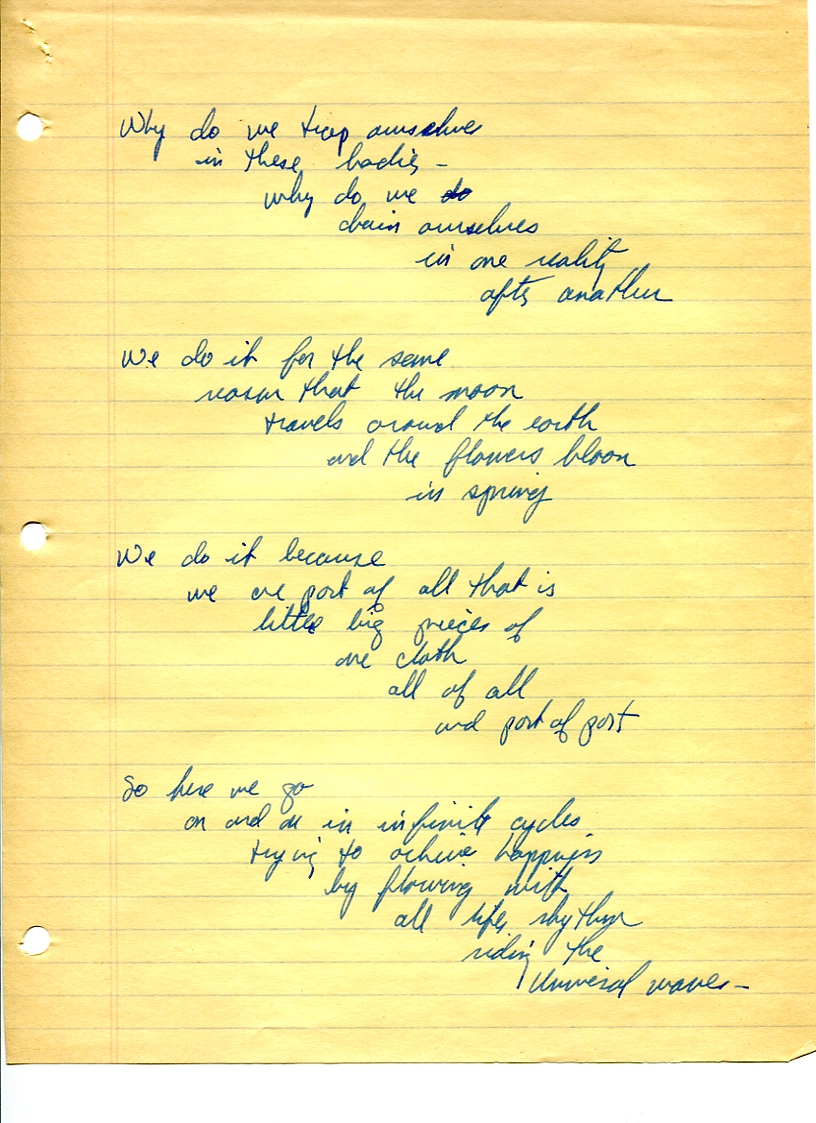 Why do we trap ourselves
in these bodies -
why do we do
chain ourselves
in one reality
after another
We do it for the same
reason that the moon
travels around the earth
and the flowers bloom
in spring
We do it because
we are part of all that is
little big pieces of
one cloth
all of all
and part of part
So here we go
on and on in infinite cycles
trying to achieve happiness
by flowing with
all lifes rhythm
riding the
Universal waves -